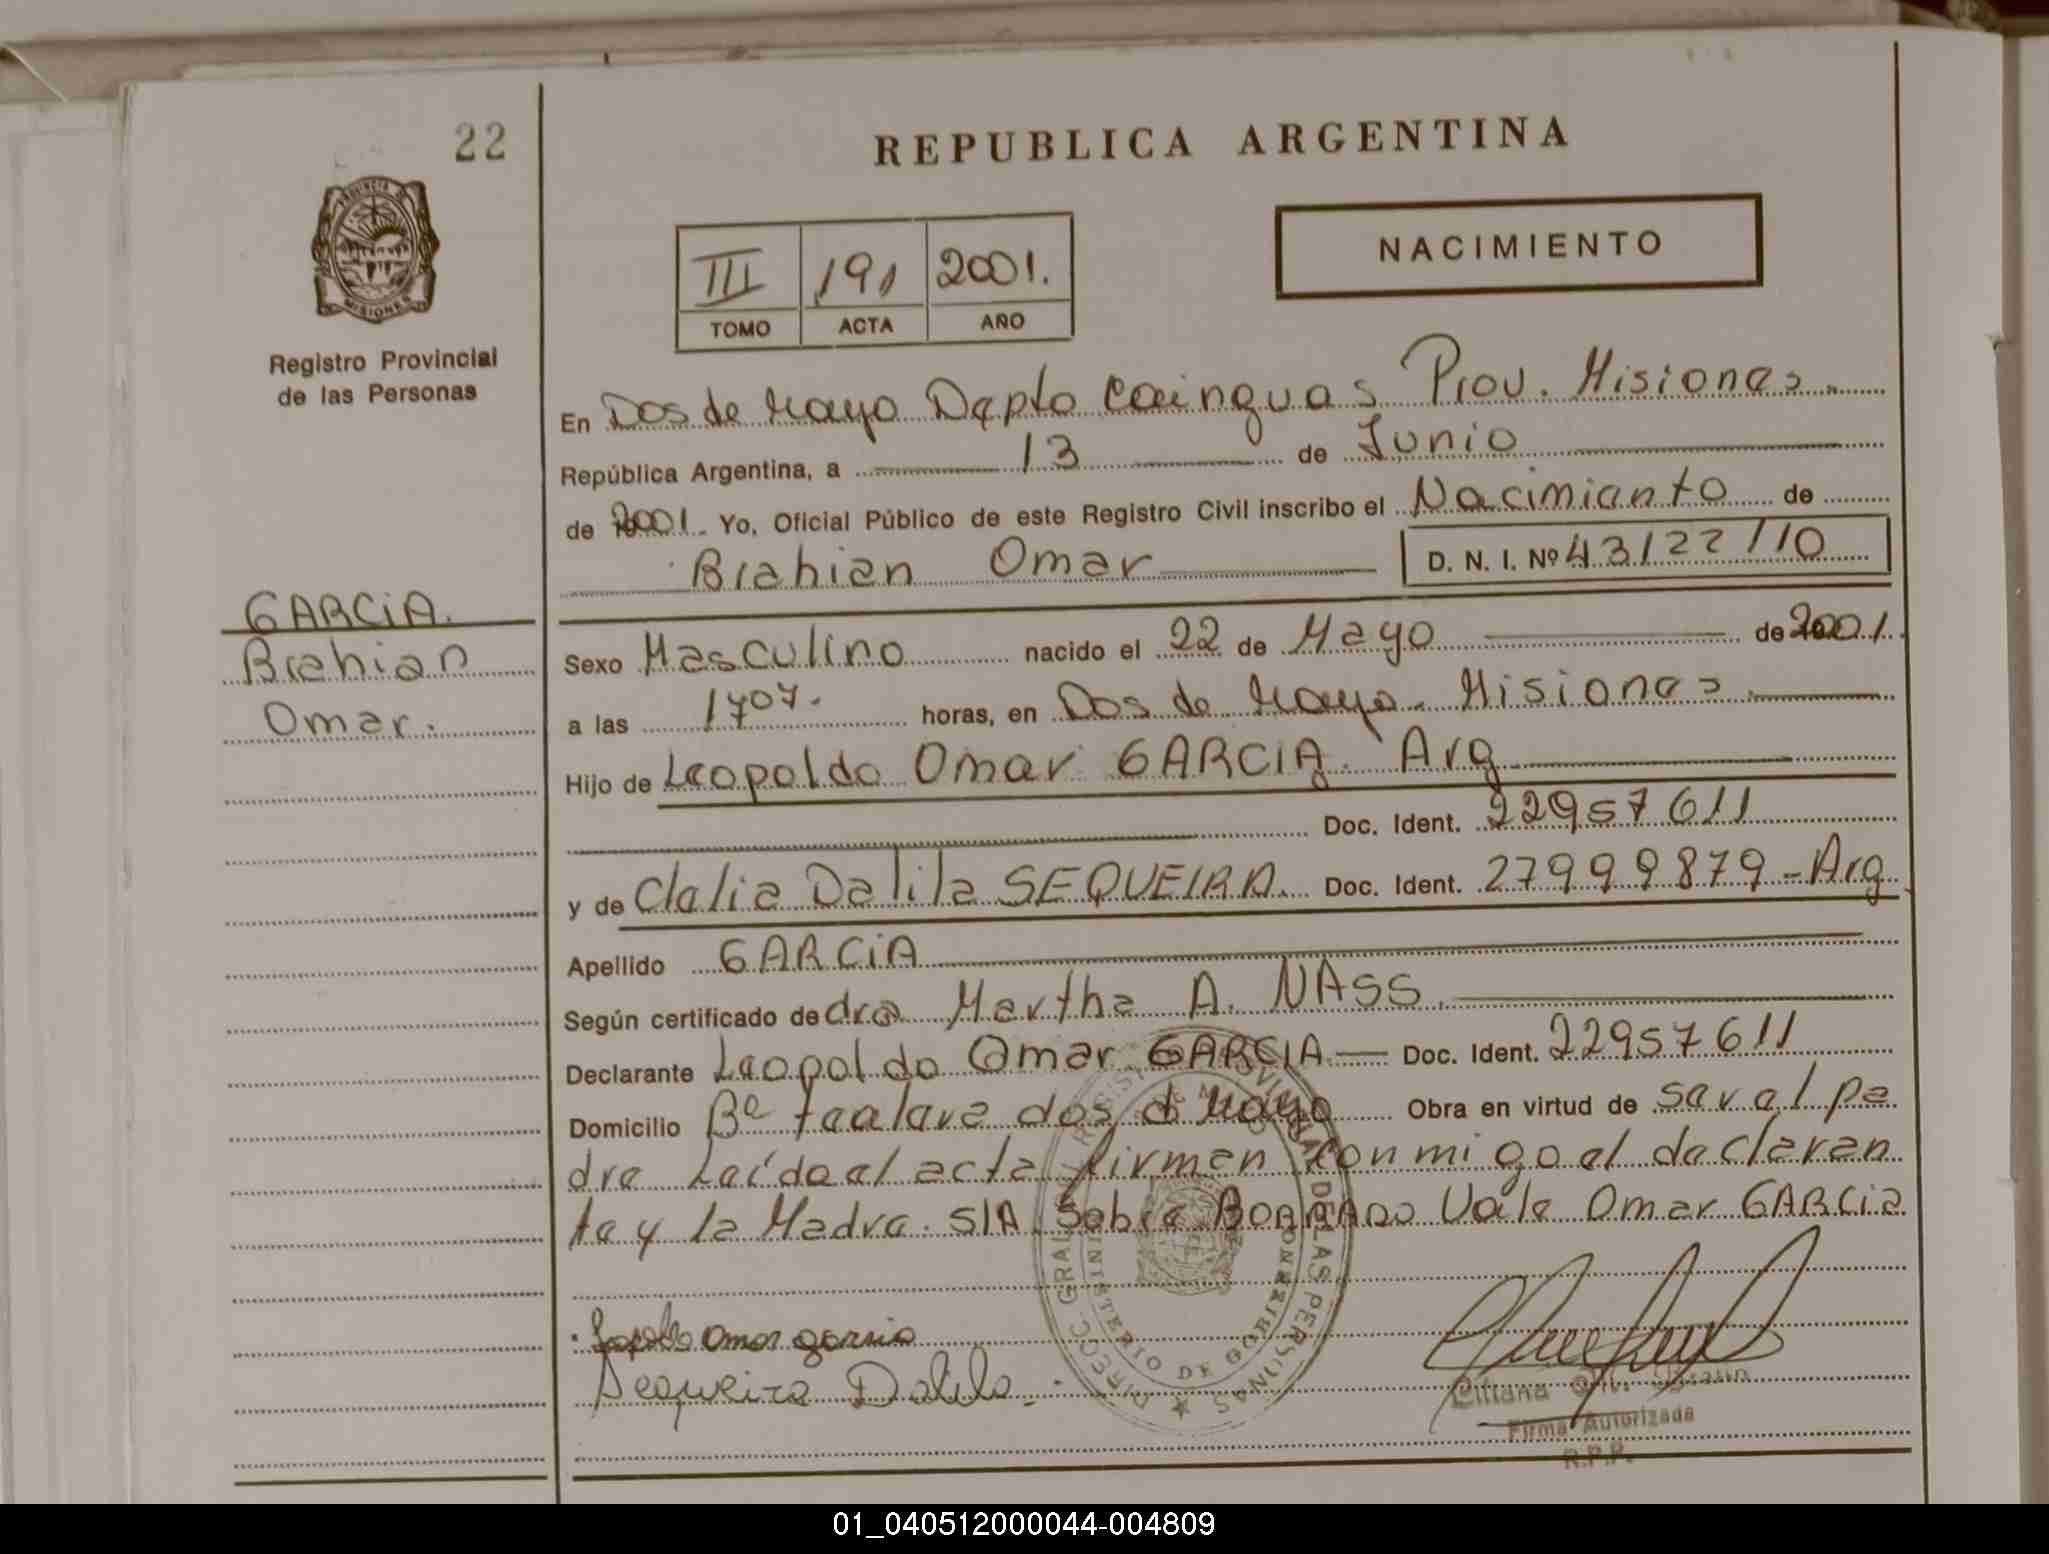 22
REPUBLICA ARGENTINA
NACIMIENTO
III 191 2001.
TOMO ACTA AÑO
PROVINCIA DE MISIONES
Registro Provincial
de las Personas
En Dos de Mayo Depto Cainguas Prov. Misiones.
República Argentina, a 13 de Junio
de 2001. Yo, Oficial Público de este Registro Civil inscribo el Nacimiento de
Brahian Omar D. N. I. Nº 43122710
GARCIA.
Brahian
Omar.
Sexo Masculino nacido el 22 de Mayo de 2001.
a las 1707. horas, en Dos de Mayo. Misiones
Hijo de Leopoldo Omar GARCIA. Arg
Doc. Ident. 22957611
y de Clelia Dalila SEQUEIRA. Doc. Ident. 27999879-Arg
Apellido GARCIA
Según certificado de dra Martha A. NASS.
Declarante Leopoldo Omar GARCIA Doc. Ident. 22957611
Domicilio Bº dos d Mayo Obra en virtud de ser el pa
dre Leída el acta firman conmigo el declaran
te y la Madre. S/A. Sobre BORRADO Vale Omar GARCia
Leopoldo Omar garcia
Sequeira Dalila.
DIRECC. GRAL. REGISTRO PROVINCIAL DE LAS PERSONAS
MINISTERIO DE GOBIERNO
Firma Autorizada
R.P.P.
01_040512000044-004809